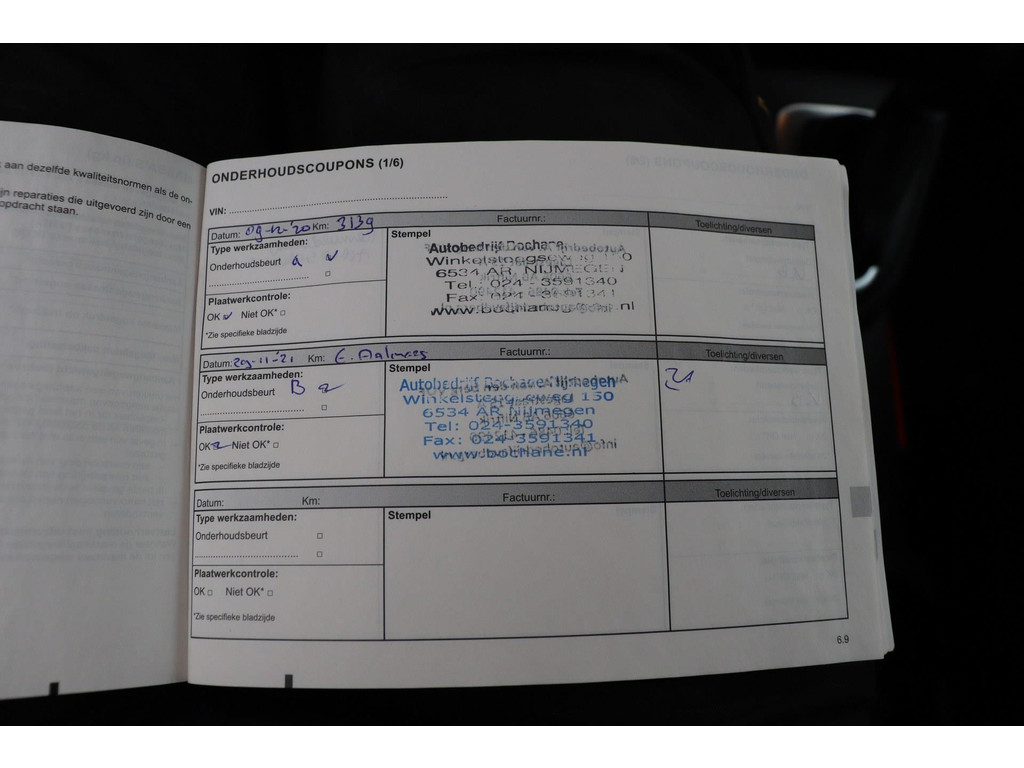 aan dezelfde kwaliteitsnormen als de on-
jn reparaties die uitgevoerd zijn door een
opdracht staan.
ONDERHOUDSCOUPONS (1/6)
VIN:
Datum: 09-12-'20 Km: 3139 Factuurnr.: Toelichting/diversen
Type werkzaamheden:
Onderhoudsbeurt a
Plaatwerkcontrole:
OK Niet OK*
*Zie specifieke bladzijde
Stempel
Autobedrijf Bochane
Winkelsteegseweg 150
6534 AR NIJMEGEN
Tel. 024 - 3591340
Fax 024 - 3591341
www.bochane.nl
Datum: 29-11-'21 Km: Factuurnr.: Toelichting/diversen
Type werkzaamheden:
Onderhoudsbeurt B
Plaatwerkcontrole:
OK Niet OK*
*Zie specifieke bladzijde
Stempel
Autobedrijf Bochane Nijmegen
Winkelsteegseweg 150
6534 AR Nijmegen
Tel: 024-3591340
Fax: 024-3591341
www.bochane.nl
Datum: Km: Factuurnr.: Toelichting/diversen
Type werkzaamheden:
Onderhoudsbeurt
Plaatwerkcontrole:
OK Niet OK*
*Zie specifieke bladzijde
Stempel
6.9